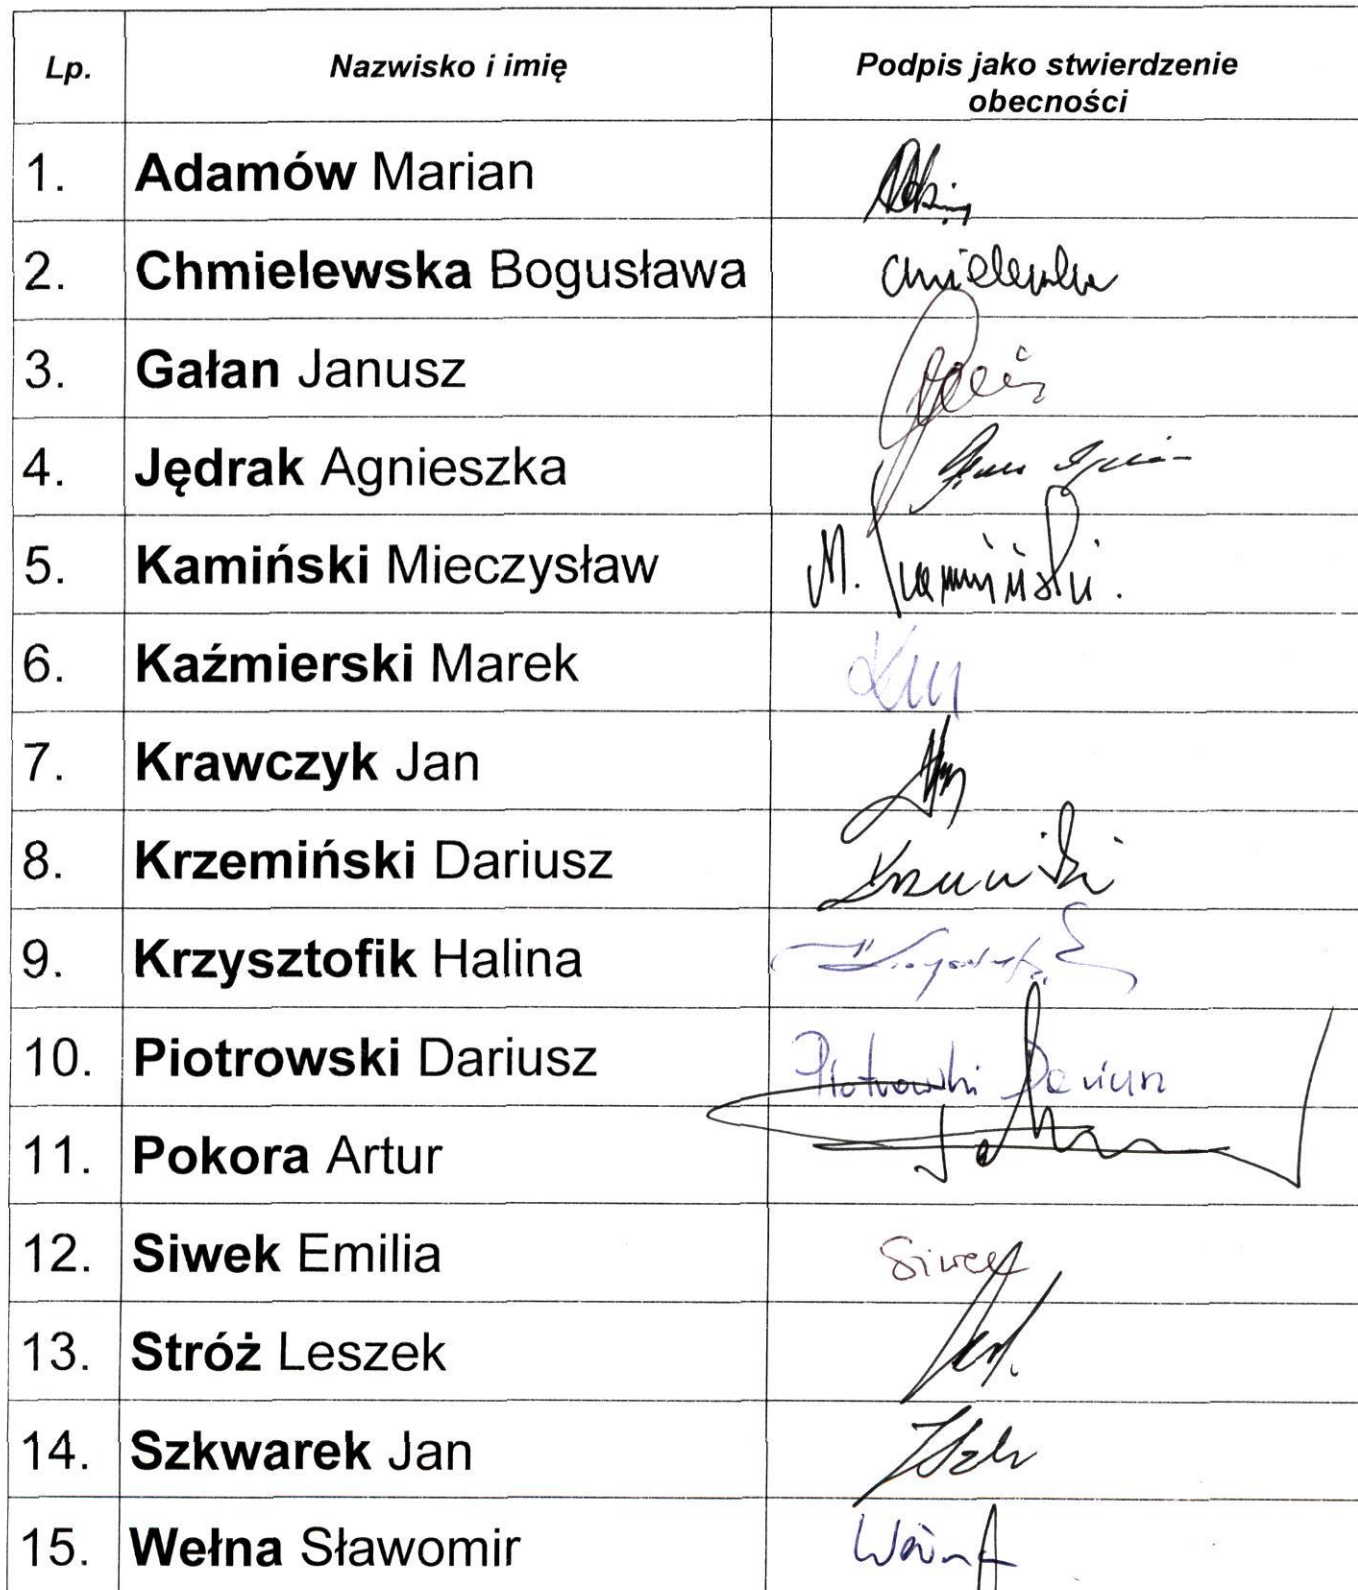 Lp. Nazwisko i imię Podpis jako stwierdzenie
obecności
1. Adamów Marian
2. Chmielewska Bogusława
3. Gałan Janusz
4. Jędrak Agnieszka
5. Kamiński Mieczysław M. Kamiński.
6. Kaźmierski Marek
7. Krawczyk Jan
8. Krzemiński Dariusz
9. Krzysztofik Halina
10. Piotrowski Dariusz Piotrowski Dariusz
11. Pokora Artur
12. Siwek Emilia Siwek
13. Stróż Leszek
14. Szkwarek Jan
15. Wełna Sławomir